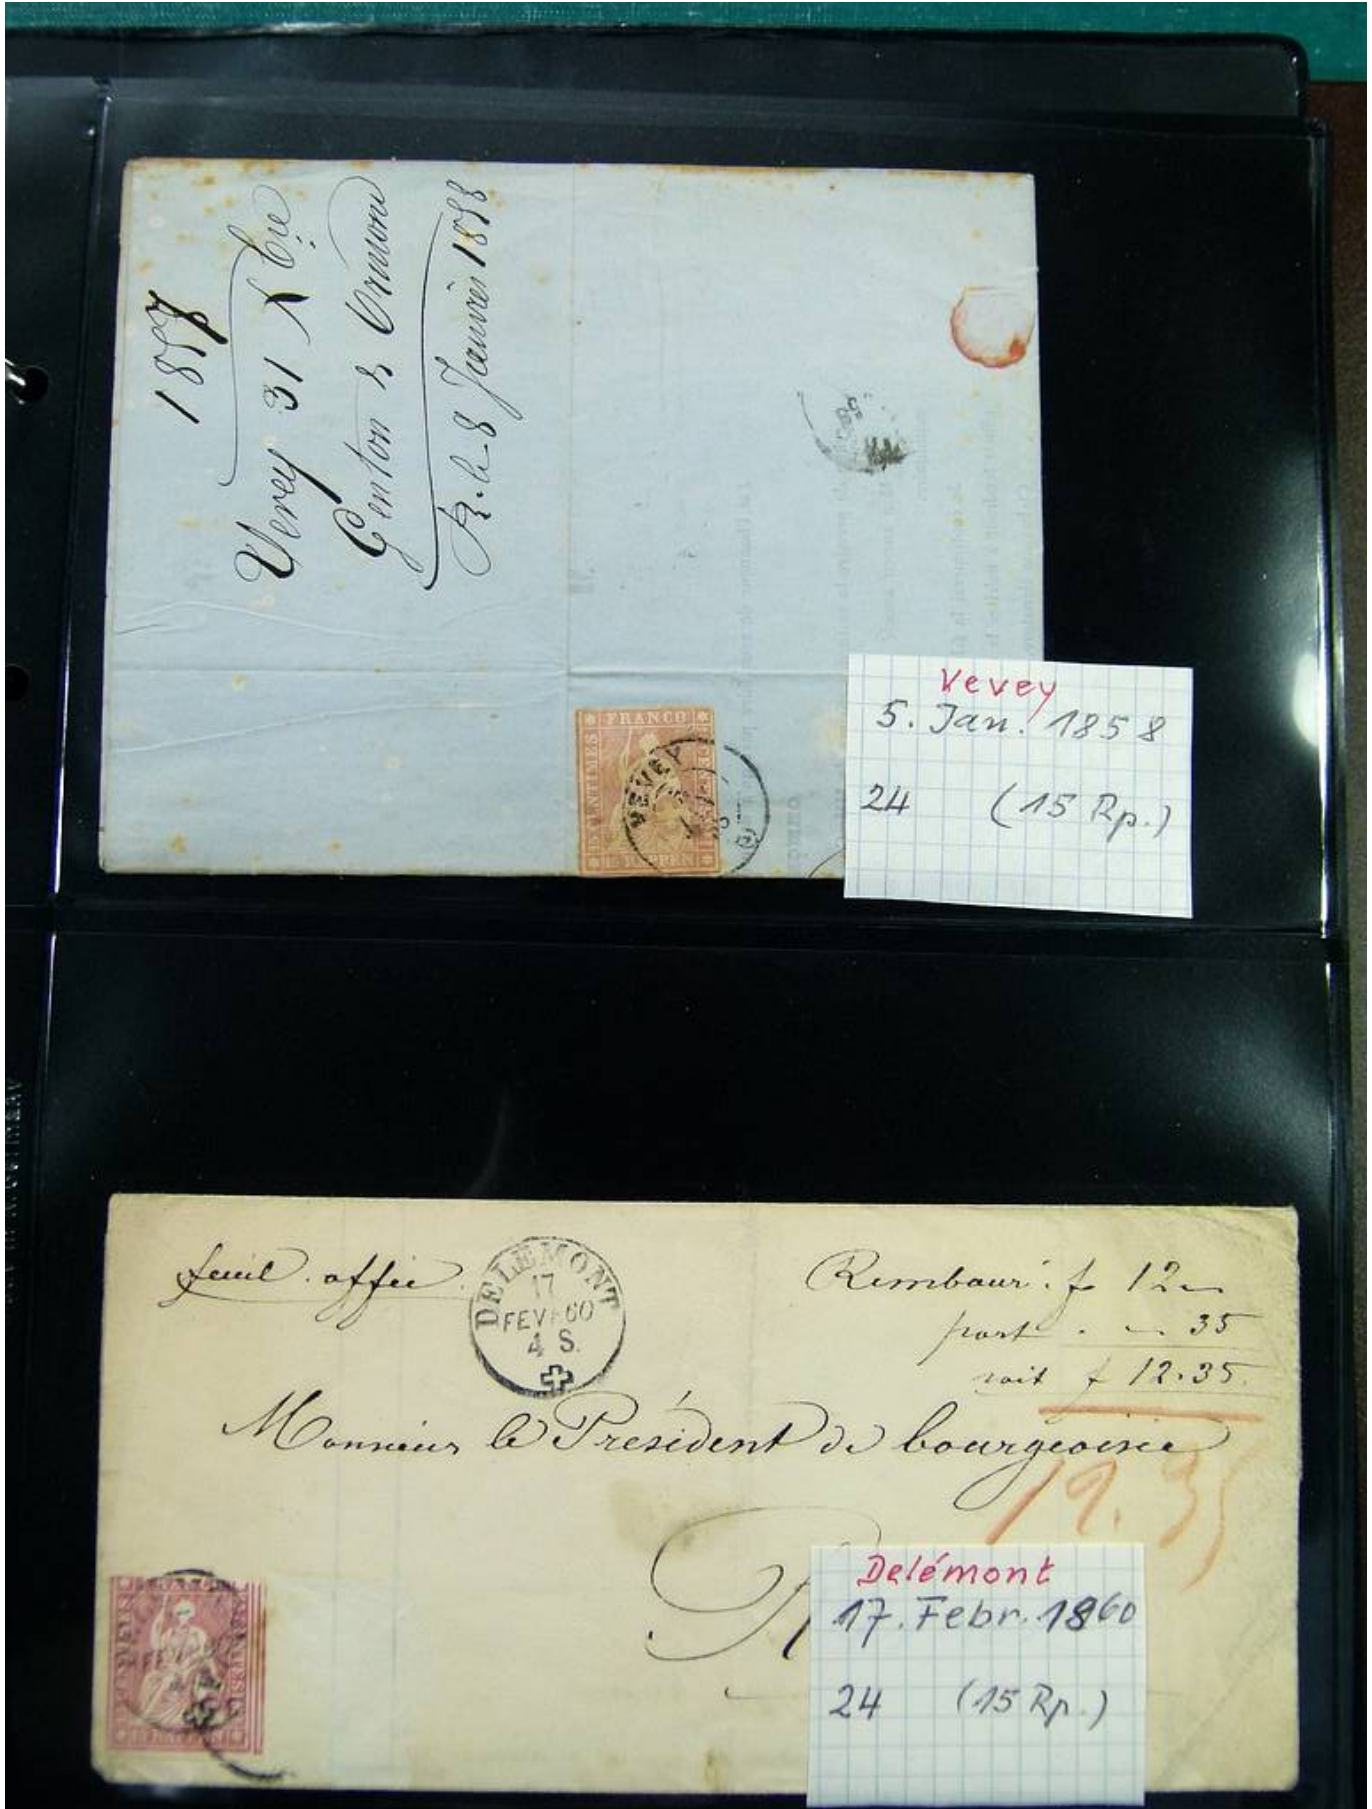 1857
Vevey 31 Xbre
Genton & Ormond
R. le 8 Janvier 1858
58
FRANCO
CENTIMES
RAPPEN
VEVEY
Vevey
5. Jan. 1858
24 (15 Rp.)
feuil. offie.
DELÉMONT
17
FEVR 60
4 S.
Rembour.t f 12 "
port . " 35
soit f 12.35
Monsieur le Président de bourgeoisie
12.35
Delémont
17. Febr. 1860
24 (15 Rp.)